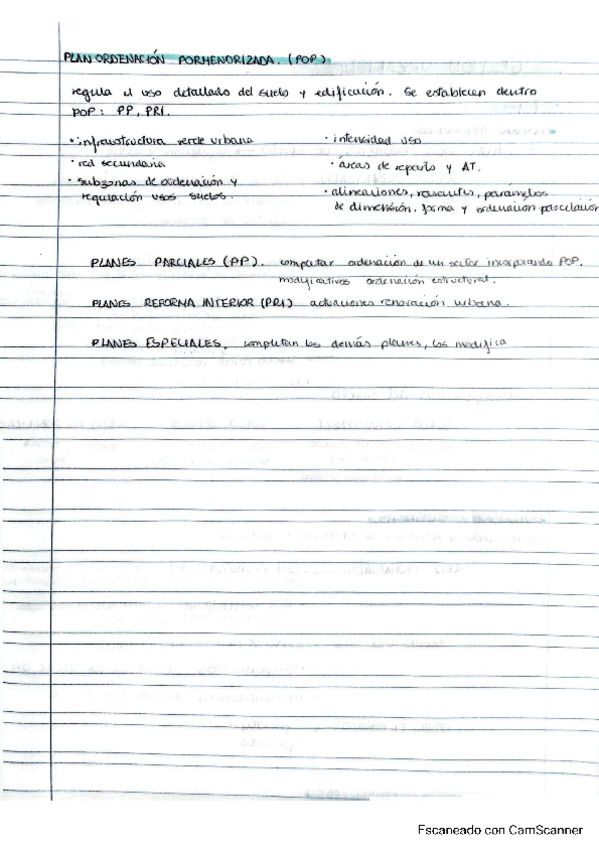 PLAN ORDENACIÓN PORMENORIZADA. (POP)
regula el uso detallado del suelo y edificación. Se establecen dentro
POP: PP, PRI.
• infraestructura verde urbana
• red secundaria
• subzonas de ordenación y
regulación usos suelos.
• intensidad uso
• áreas de reparto y AT.
• alineaciones, rasantes, parámetros
de dimensión, forma y ordenación parcelación
PLANES PARCIALES (PP). completar ordenación de un sector incorporando POP.
modificativos ordenación estructural.
PLANES REFORMA INTERIOR (PRI) actuaciones renovación urbana.
PLANES ESPECIALES, completan los demás planes, los modifica
Escaneado con CamScanner